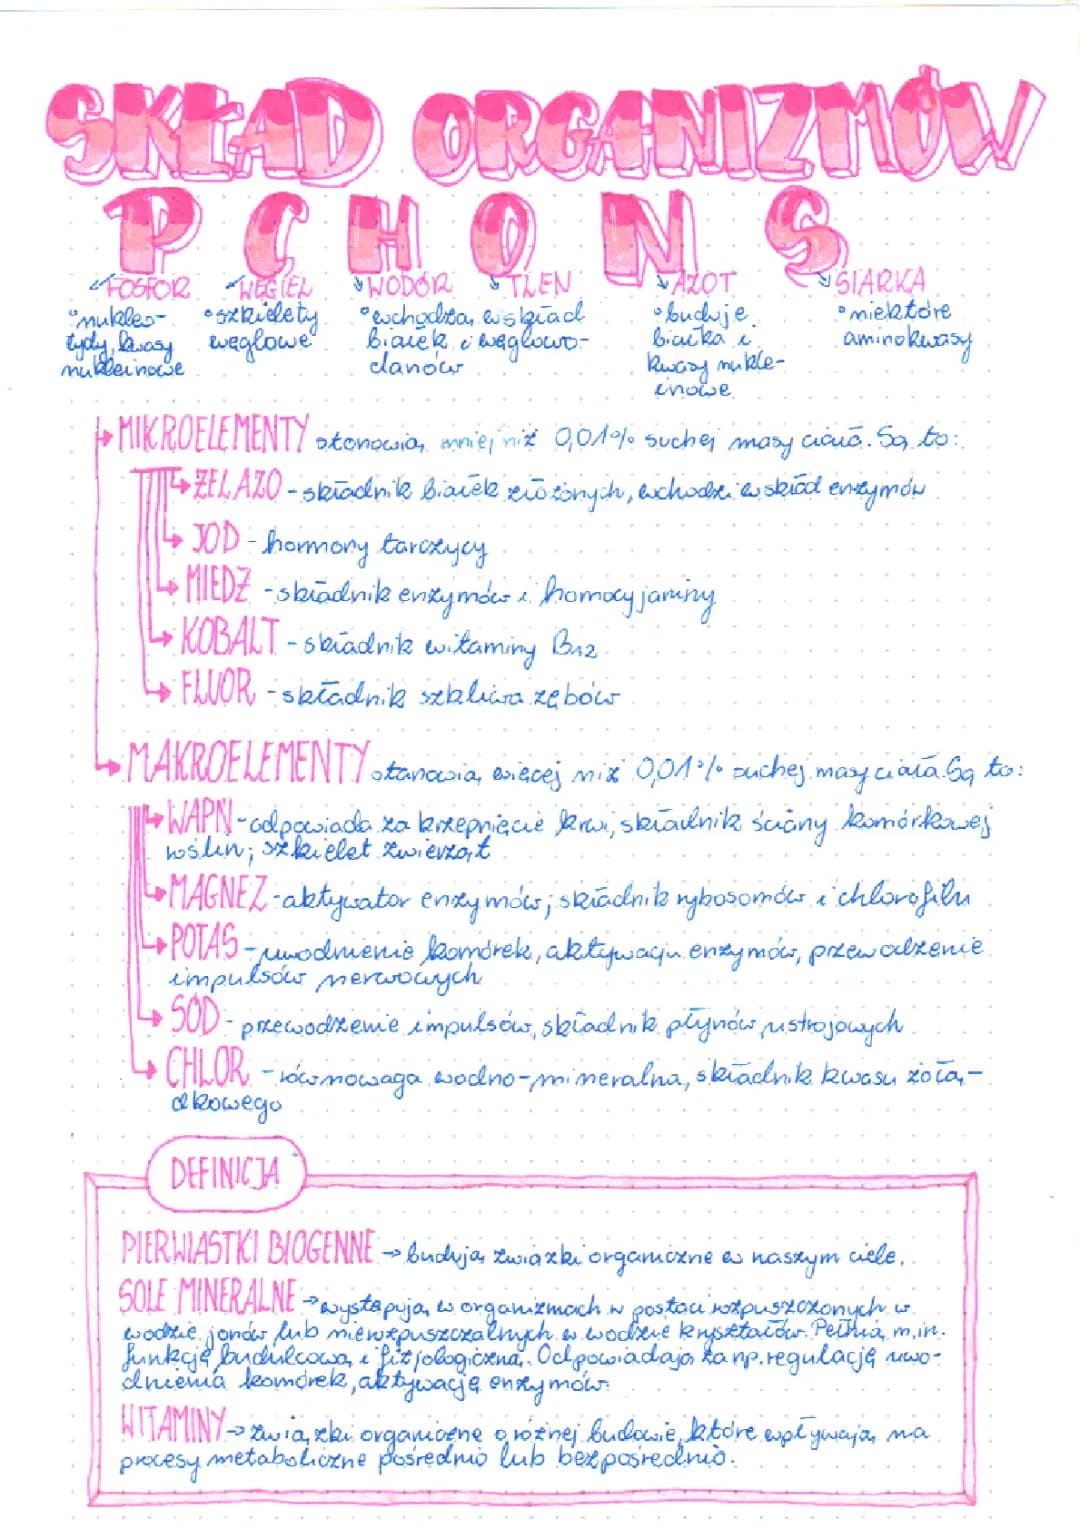 SKŁAD ORGANIZMÓW
P C H O N S
FOSFOR WĘGIEL WODÓR TLEN AZOT SIARKA
•nukleo- •szkielety •wchodzą w skład •buduje •niektóre
tydy, kwasy węglowe białek i węglowo- białka i aminokwasy
nukleinowe danów kwasy nukle-
inowe
MIKROELEMENTY stanowią mniej niż 0,01% suchej masy ciała. Są to:
ŻELAZO - składnik białek złożonych, wchodzi w skład enzymów
JOD - hormony tarczycy
MIEDŹ - składnik enzymów i homocyjaniny
KOBALT - składnik witaminy B12
FLUOR - składnik szkliwa zębów
MAKROELEMENTY stanowią więcej niż 0,01% suchej masy ciała. Są to:
WAPŃ - odpowiada za krzepnięcie krwi, składnik ściany komórkowej
roślin; szkielet zwierząt
MAGNEZ - aktywator enzymów; składnik rybosomów i chlorofilu
POTAS - uwodnienie komórek, aktywacja enzymów, przewodzenie
impulsów nerwowych
SÓD - przewodzenie impulsów, składnik płynów ustrojowych
CHLOR - równowaga wodno-mineralna, składnik kwasu żołą-
dkowego
DEFINICJA
PIERWIASTKI BIOGENNE → budują związki organiczne w naszym ciele.
SOLE MINERALNE → występują w organizmach w postaci rozpuszczonych w
wodzie jonów lub nierozpuszczalnych w wodzie kryształów. Pełnią m.in.
funkcję budulcową i fizjologiczną. Odpowiadają za np. regulację uwo-
dnienia komórek, aktywację enzymów.
WITAMINY → związki organiczne o różnej budowie, które wpływają na
procesy metaboliczne pośrednio lub bezpośrednio.